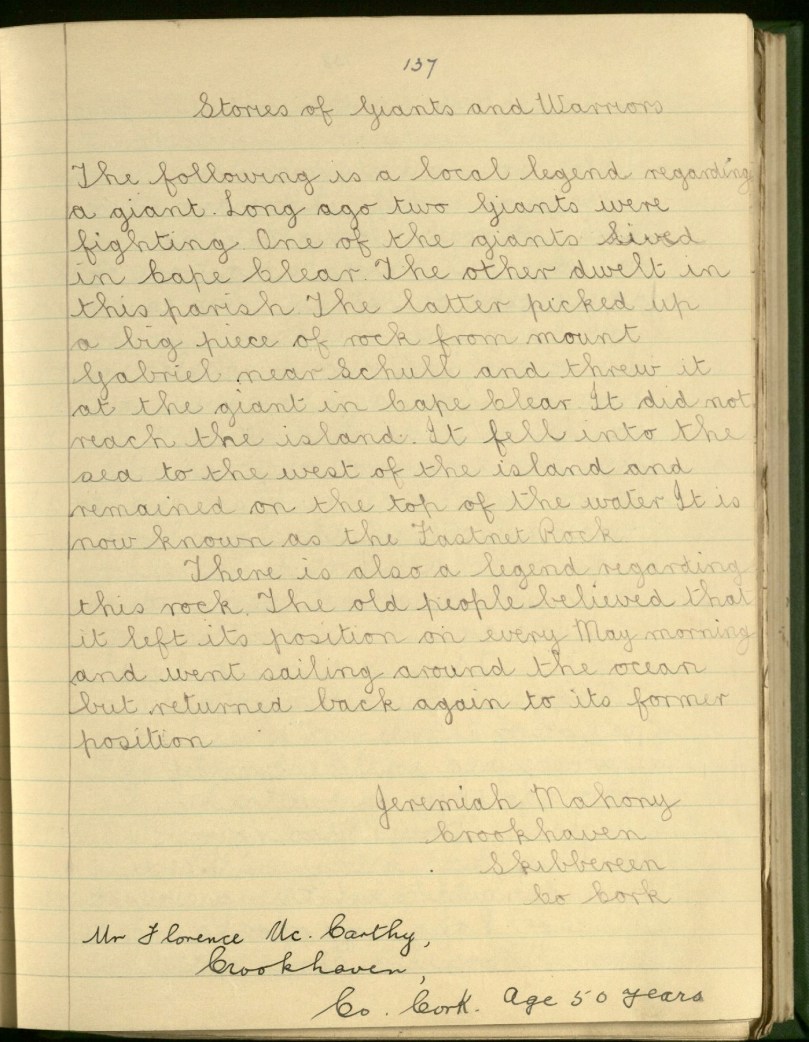 137
Stories of Giants and Warriors
The following is a local legend regarding
a giant. Long ago two Giants were
fighting. One of the giants lived
in Cape Clear. The other dwelt in
this parish. The latter picked up
a big piece of rock from mount
Gabriel near Schull and threw it
at the giant in Cape Clear. It did not
reach the island. It fell into the
sea to the west of the island and
remained on the top of the water It is
now known as the Fastnet Rock
There is also a legend regarding
this rock. The old people believed that
it left its position on every May morning
and went sailing around the ocean
but returned back again to its former
position
Jeremiah Mahony
Crookhaven
Skibbereen
Co Cork
Mr Florence Mc. Carthy,
Crookhaven,
Co. Cork. Age 50 years